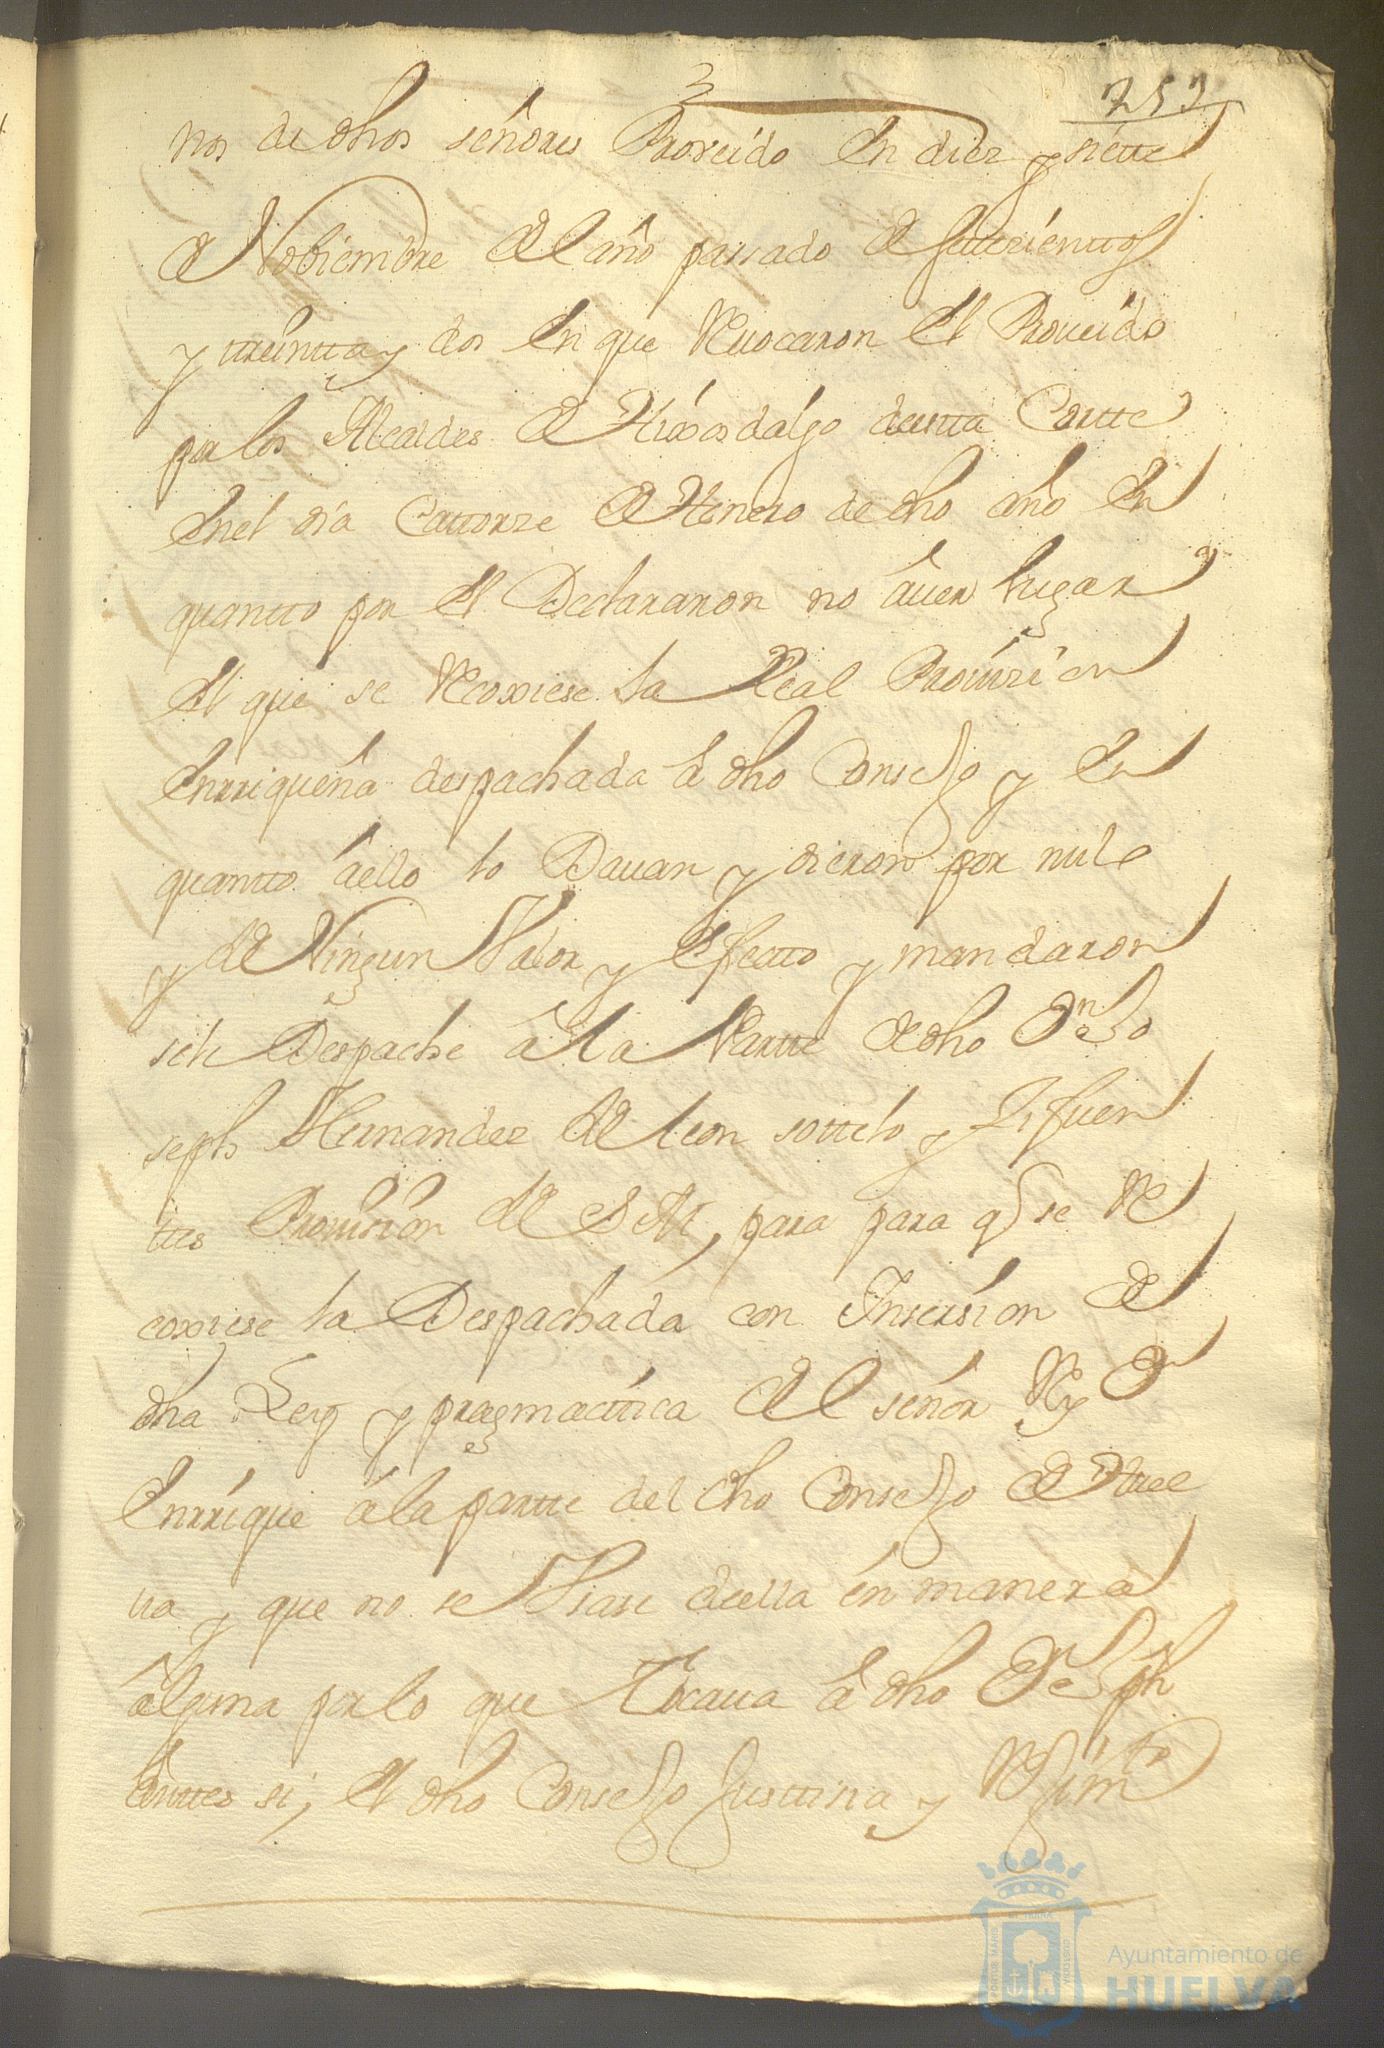 3
253
nos de dhos señores Proveido En diez y siette
de Nobiembre del año passado de settezienttos
y ttreintta y dos En que Revocaron El Proueido
por los Alcaldes de Hixosdalgo de estta Cortte
En el dia Cattorze de Henero de dho año En
quantto por el Declararon no auer lugar
El que se Recoxiese la Real Prouizion
Enrriqueña despachada a dho Consejo y En
quantto aello lo Dauan y dieron por nulo
y de Ningun Valor y Efectto y mandaron
se le Despache a la Partte de dho Dn Jo
seph Hernandez de leon sottelo y Zifuen
ttes Prouision de S M, para para q se Re
coxiese la Despachada con Insersion de
dha Ley y pragmacttica del señor Rey Dn
Enrrique a la partte del dho Consejo de Huel
ua y que no se Vsase de ella en manera
alguna por lo que Tocaua a dho Dn Jph
Anttes si, El dho Consejo Justtizia y Rejimto
Ayuntamiento de
HUELVA